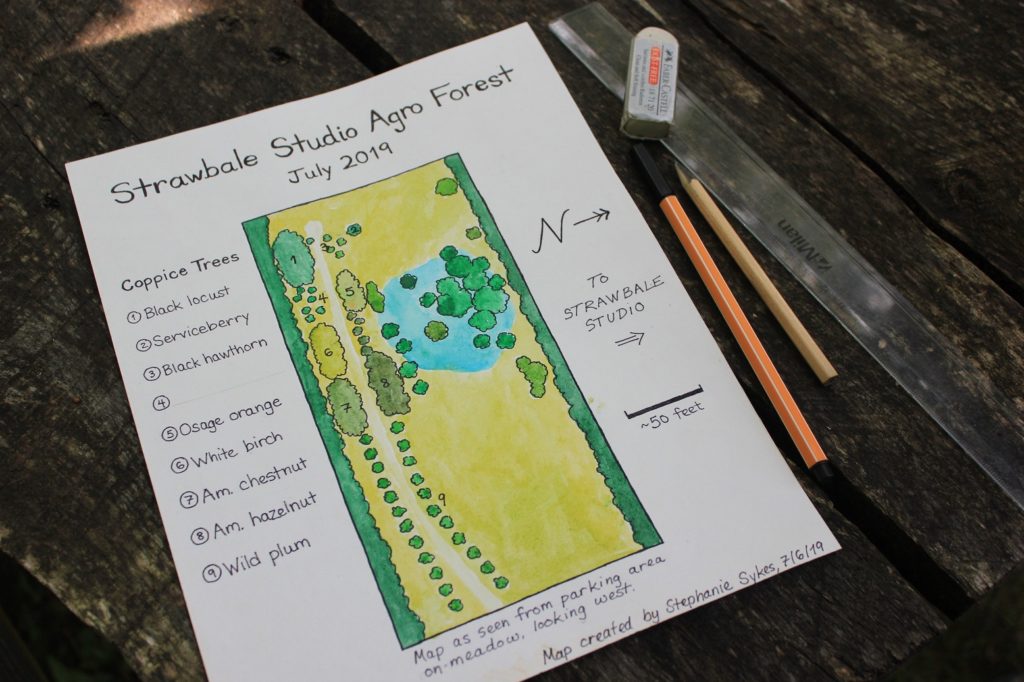 Strawbale Studio Agro Forest
July 2019
Coppice Trees
① Black locust
② Serviceberry
③ Black hawthorn
④
⑤ Osage orange
⑥ White birch
⑦ Am. chestnut
⑧ Am. hazelnut
⑨ Wild plum
1
2
3
4
5
6
7
8
9
N
TO
STRAWBALE
STUDIO
~50 feet
Map as seen from parking area
on-meadow, looking west.
Map created by Stephanie Sykes, 7/6/19
FABER-CASTELL
DUST-FREE
Milan